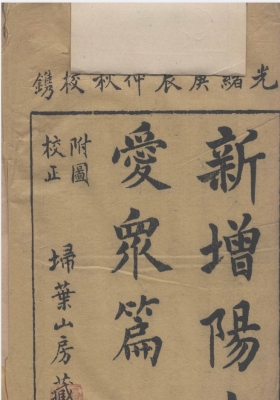 光緒庚辰仲秋校鐫
新增陽
愛眾篇
附圖
校正
埽葉山房藏